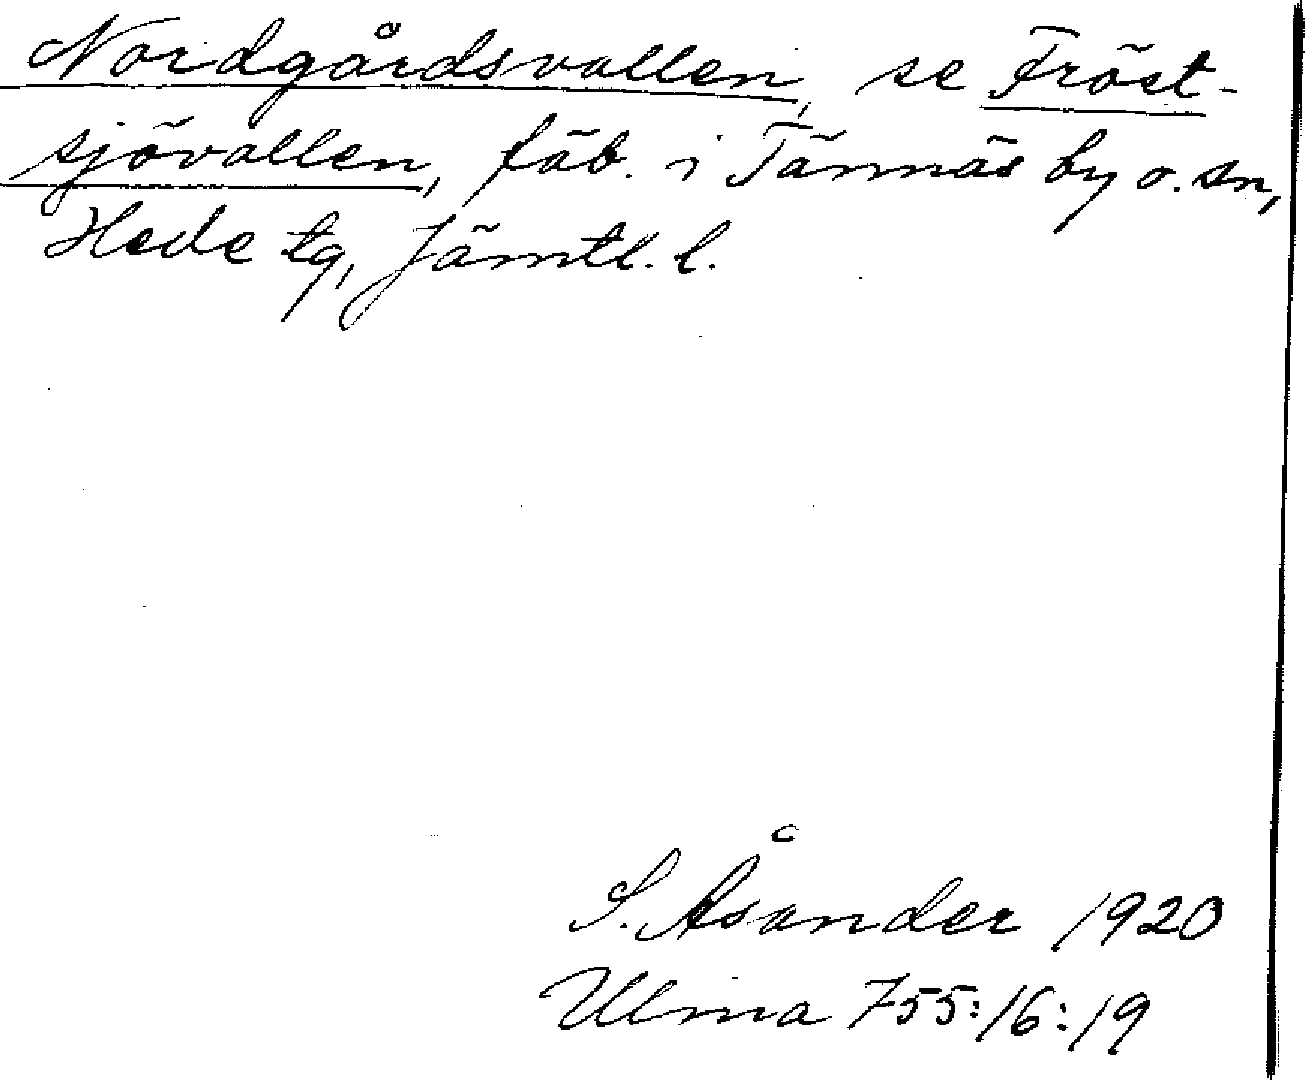 Nordgårdsvallen, se Fröst-
sjövallen, fäb. i Tännäs by o. sn,
Hede tg, Jämtl. l.
S. Åsander 1920
Ulma 755:16:19